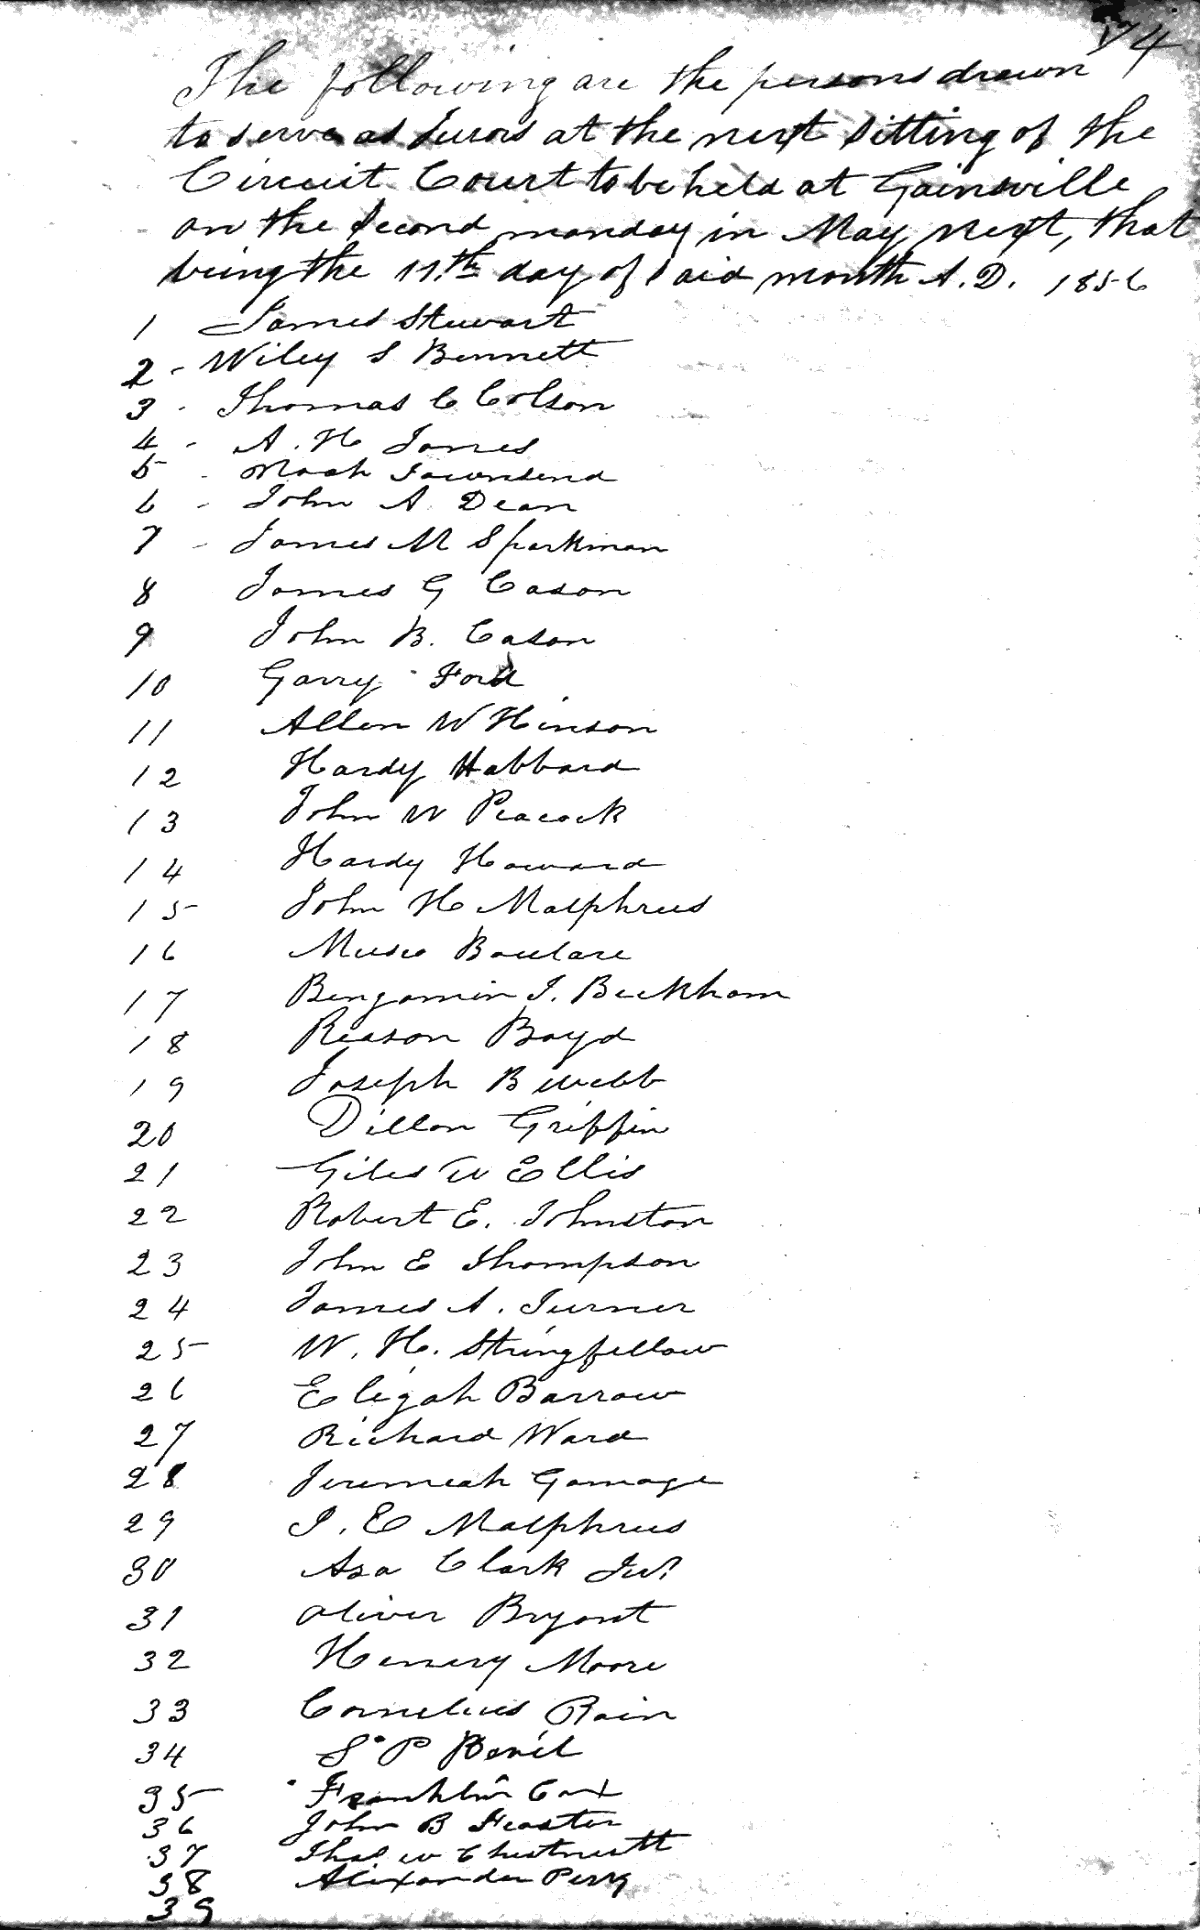 74
The following are the persons drawn
to serve as Jurors at the next sitting of the
Circuit Court to be held at Gainsville
on the second monday in May next, that
being the 11th day of said month A.D. 1856
1 James Stewart
2 - Wiley S Bennett
3 - Thomas C Colson
4 - A. H Jones
5 - Noah Townsend
6 - John A. Dean
7 - James M Sparkman
8 James G Cason
9 John B. Cason
10 Garry Ford
11 Allen W Hinson
12 Hardy Habbard
13 John W Peacock
14 Hardy Howard
15 John H Malphrus
16 Boulare
17 Bengamin J. Beckham
18 Reason Boyd
19 Joseph B Webb
20 Dillon Griffin
21 Giles W Ellis
22 Robert E. Johnston
23 John E Thompson
24 James A. Turner
25 W. H. Stringfellow
26 Eligah Barrow
27 Richard Ward
28 Jeremeah Gamage
29 J. E Malphrus
30 Asa Clark Jur
31 Oliver Bryant
32 Henery Moore
33 Cornelius Rain
34 S. P
35 Franklin
36 John B Feaster
37 Thos W Chestnutt
38 Alixander Perry
39